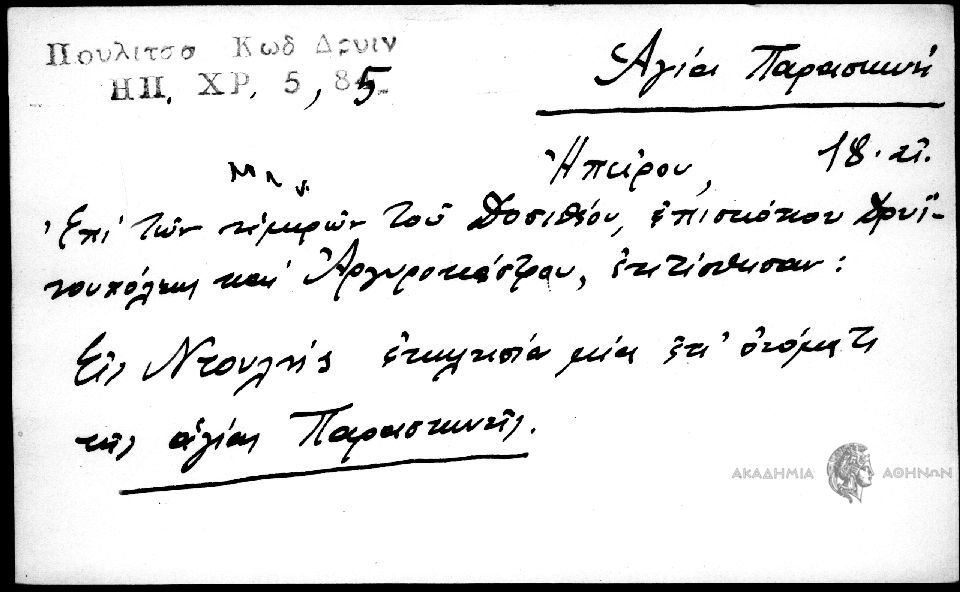 Πουλιτσα Κωδ Δρυιν
ΗΠ. ΧΡ. 5, 85
Ἁγία Παρασκευή
Ἠπείρου, 18. αἰ.
Ἐπί τῶν ἡμερῶν τοῦ Δοσιθέου, ἐπισκόπου Δρυϊ-
νουπόλεως καί Ἀργυροκάστρου, ἐκτίσθησαν:
Εἰς Ντουλτής ἐκκλησία μία ἐπ' ὀνόματι
τῆς ἁγίας Παρασκευῆς.
ΑΚΑΔΗΜΙΑ ΑΘΗΝΩΝ